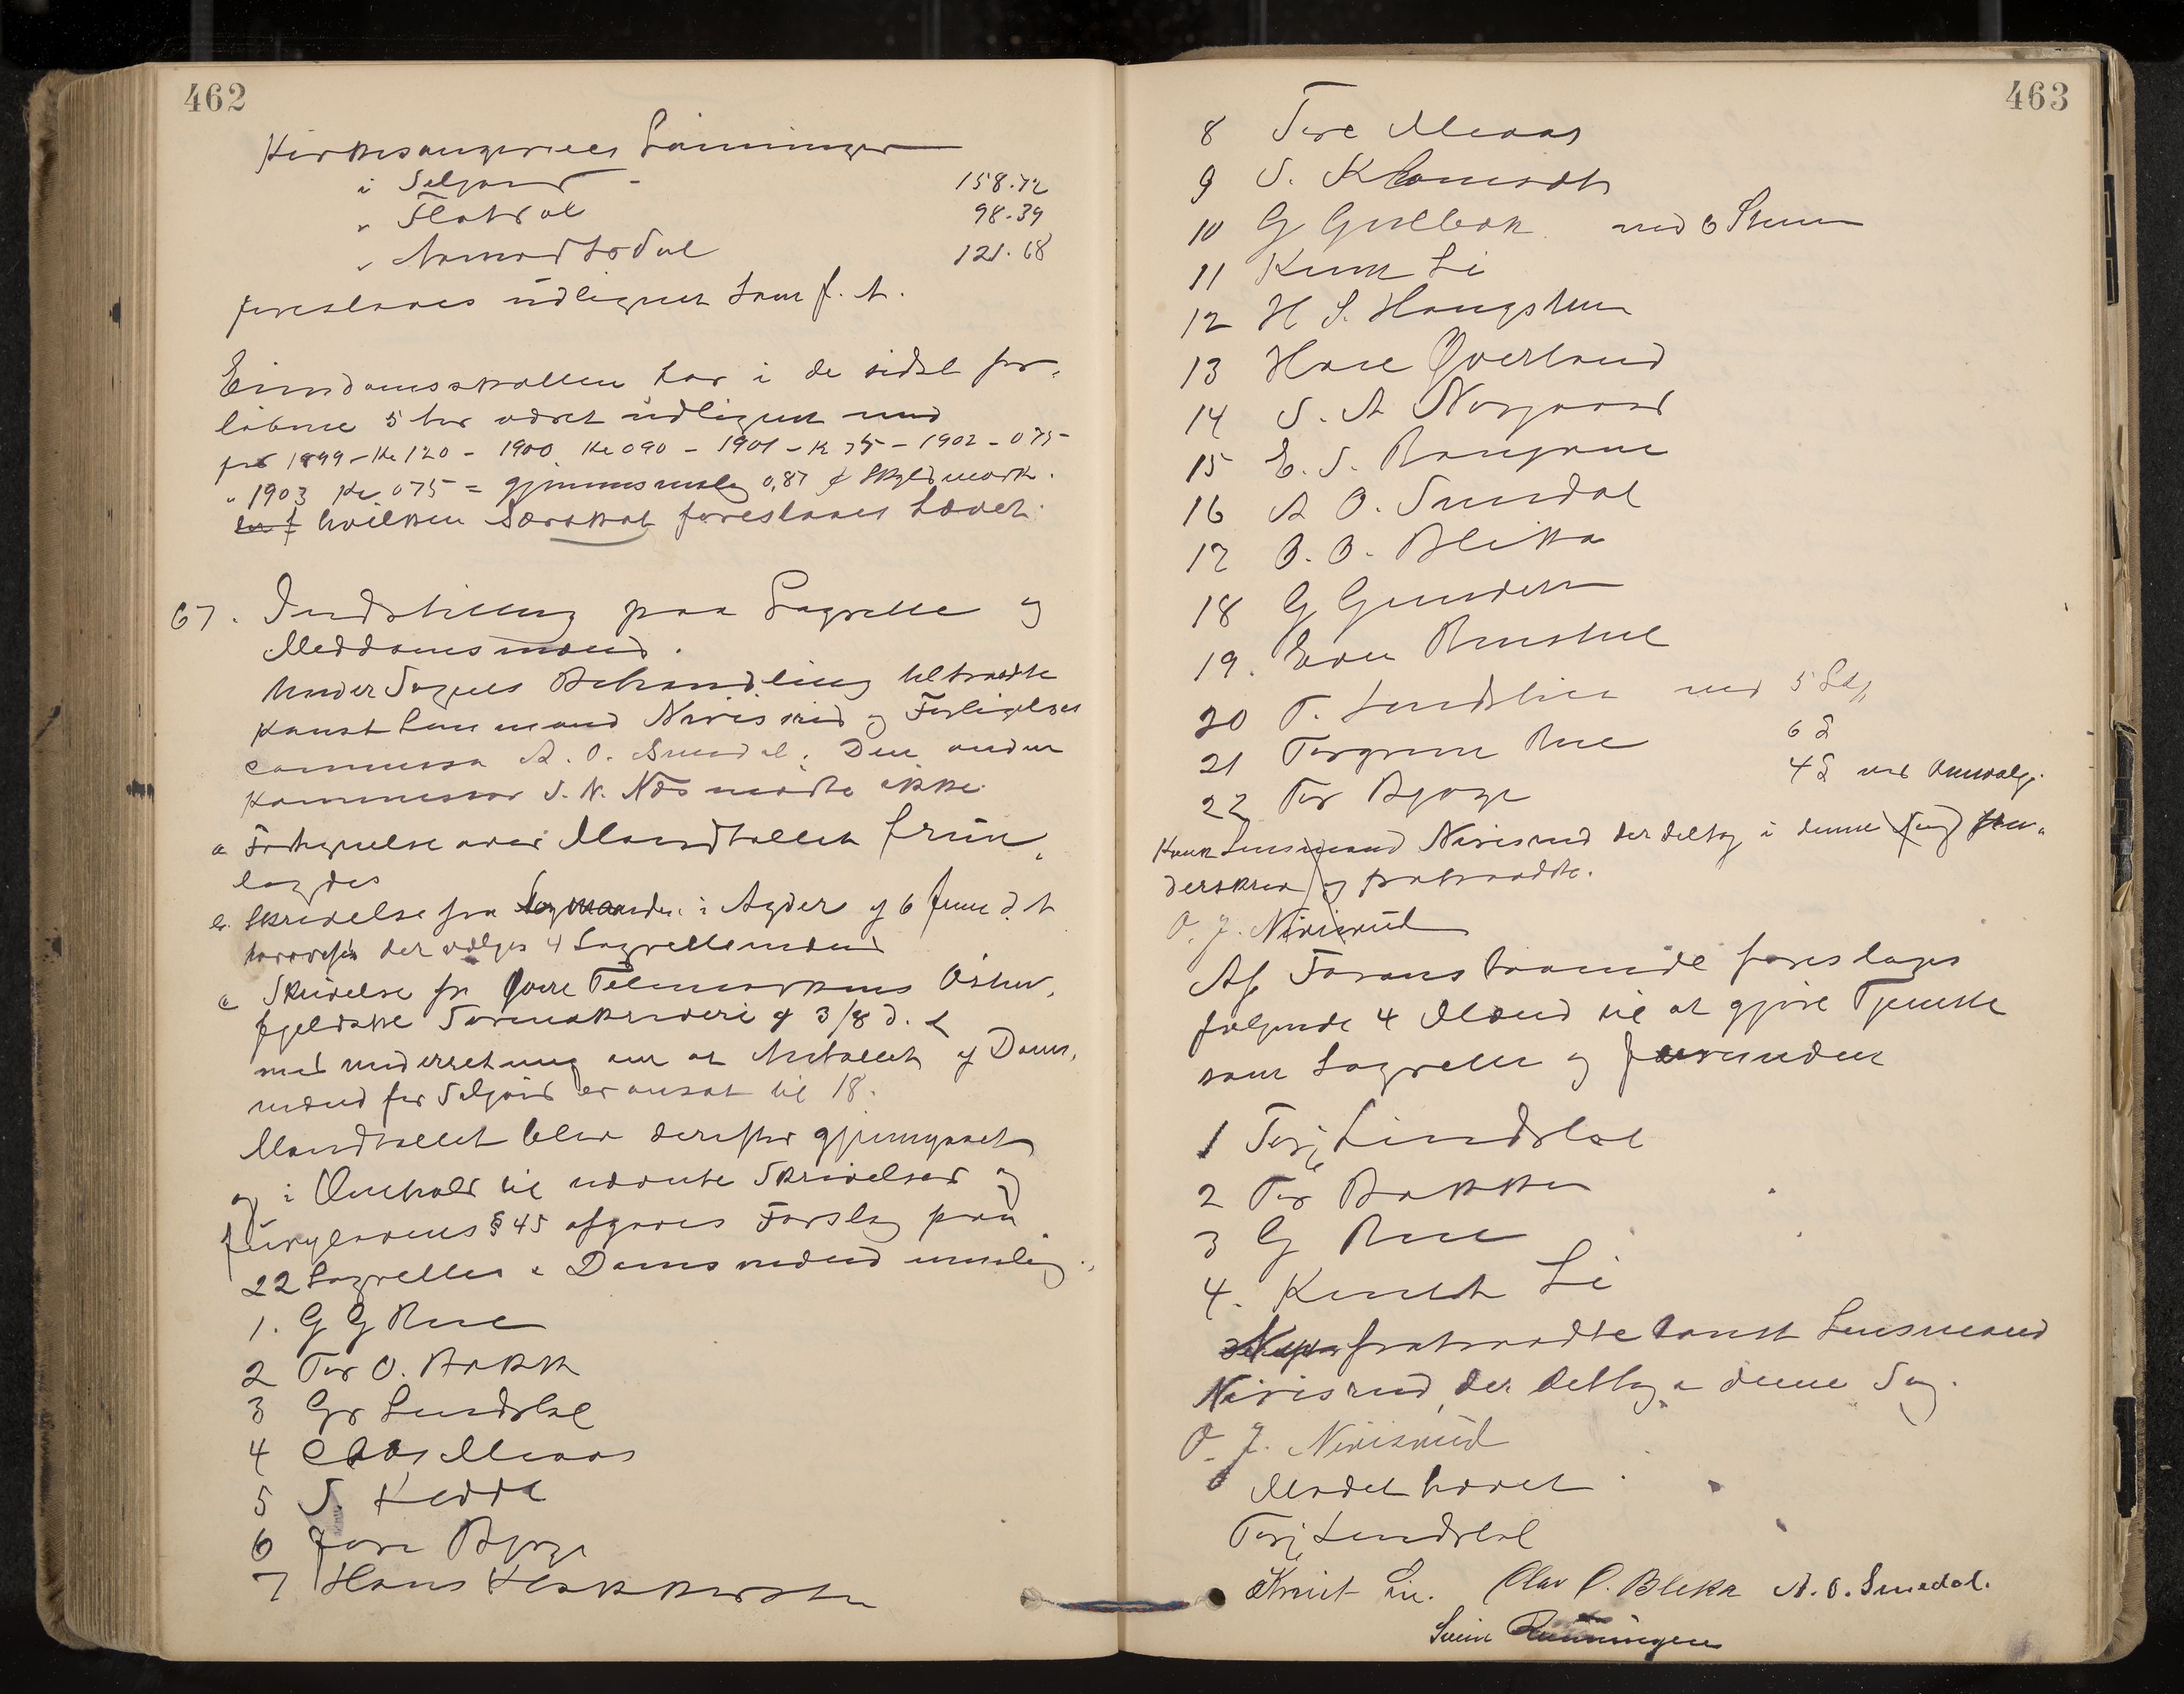 462
Kirkesangernes Lønninger
i Seljord - 158.72
" Flatdal 98.39
" Aamodtsdal 121.68
foreslaaes udlignet som f. A.
Eiendomsskatten har i de sidst for-
løbne 5 Aar været udlignet med
for 1899 - Kr 120 - 1900 Kr 090 - 1901 - Kr 75 - 1902 - 075
" 1903 Kr 075 = gjennemsnitlig 0,87 pr Skyldmark.
hvilken Særskat foreslaaes hævet.
67. Indstilling paa Lagrette og
Meddomsmænd.
Under Sagens Behandling tiltraadte
Konst Lensmand Nirisrud og Forligelses
commissær A. O. Smedal. Den anden
Kommissær S. N. Næs mødte ikke.
a Fortegnelse over Mandtallet frem-
lagdes
b. Skrivelse fra Lagmanden i Agder af 6 Juni d. A
hvorefter der vælges 4 Lagrettemænd
c Skrivelse fra Øvre Telemarkens Østen-
fjeldske Sorenskriveri af 3/8 d. A
med underretning om at Antallet af Doms-
mænd for Seljord er ansat til 18.
Mandtallet blev derefter gjennemgaaet
og i Henhold til nævnte Skrivelser og
Jurylovens § 45 afgaves Forslag paa
22 Lagrette & Domsmænd nemlig:
1. G G Rue
2 Tor O. Bakk
3 Gr Lundstal
4 Aas Moraas
5 S Kedde
6 Jore Bjørge
7 Hans Klokkersten
463
8 Tore Moraas
9 S. Klomodt
10 G Gulbæk med 6 Stemmer
11 Knut Li
12 H S. Haugstuen
13 Hans Øverland
14 S. A Norgaard
15 E. S. Rangrave
16 A O. Smedal
17 O. O. Bleka
18 G Gundersen
19. Even Rustul
20 T. Lundstal med 5 St
21 Torgrim Rue 6 S
22 Tor Bjørge 4 S ved Omvalg.
Konst Lensmand Nirisrud der deltog i denne Sag un-
derskrev og fratraadte.
O. J. Nirisrud
Af Foranstaaende foreslages
følgende 4 Mænd til at gjøre Tjeneste
som Lagrette
1 Terj. Lundstal
2 Tor Bakken
3 G Rue
4. Knut Li
fratraadte konst Lensmand
Nirisrud, der deltog i denne Sag.
O. J. Nirisrud
Mødet hævet
Terj. Lundstal
Knut Lie. Olav O. Bleka A. O. Smedal.
Svein Rünningen